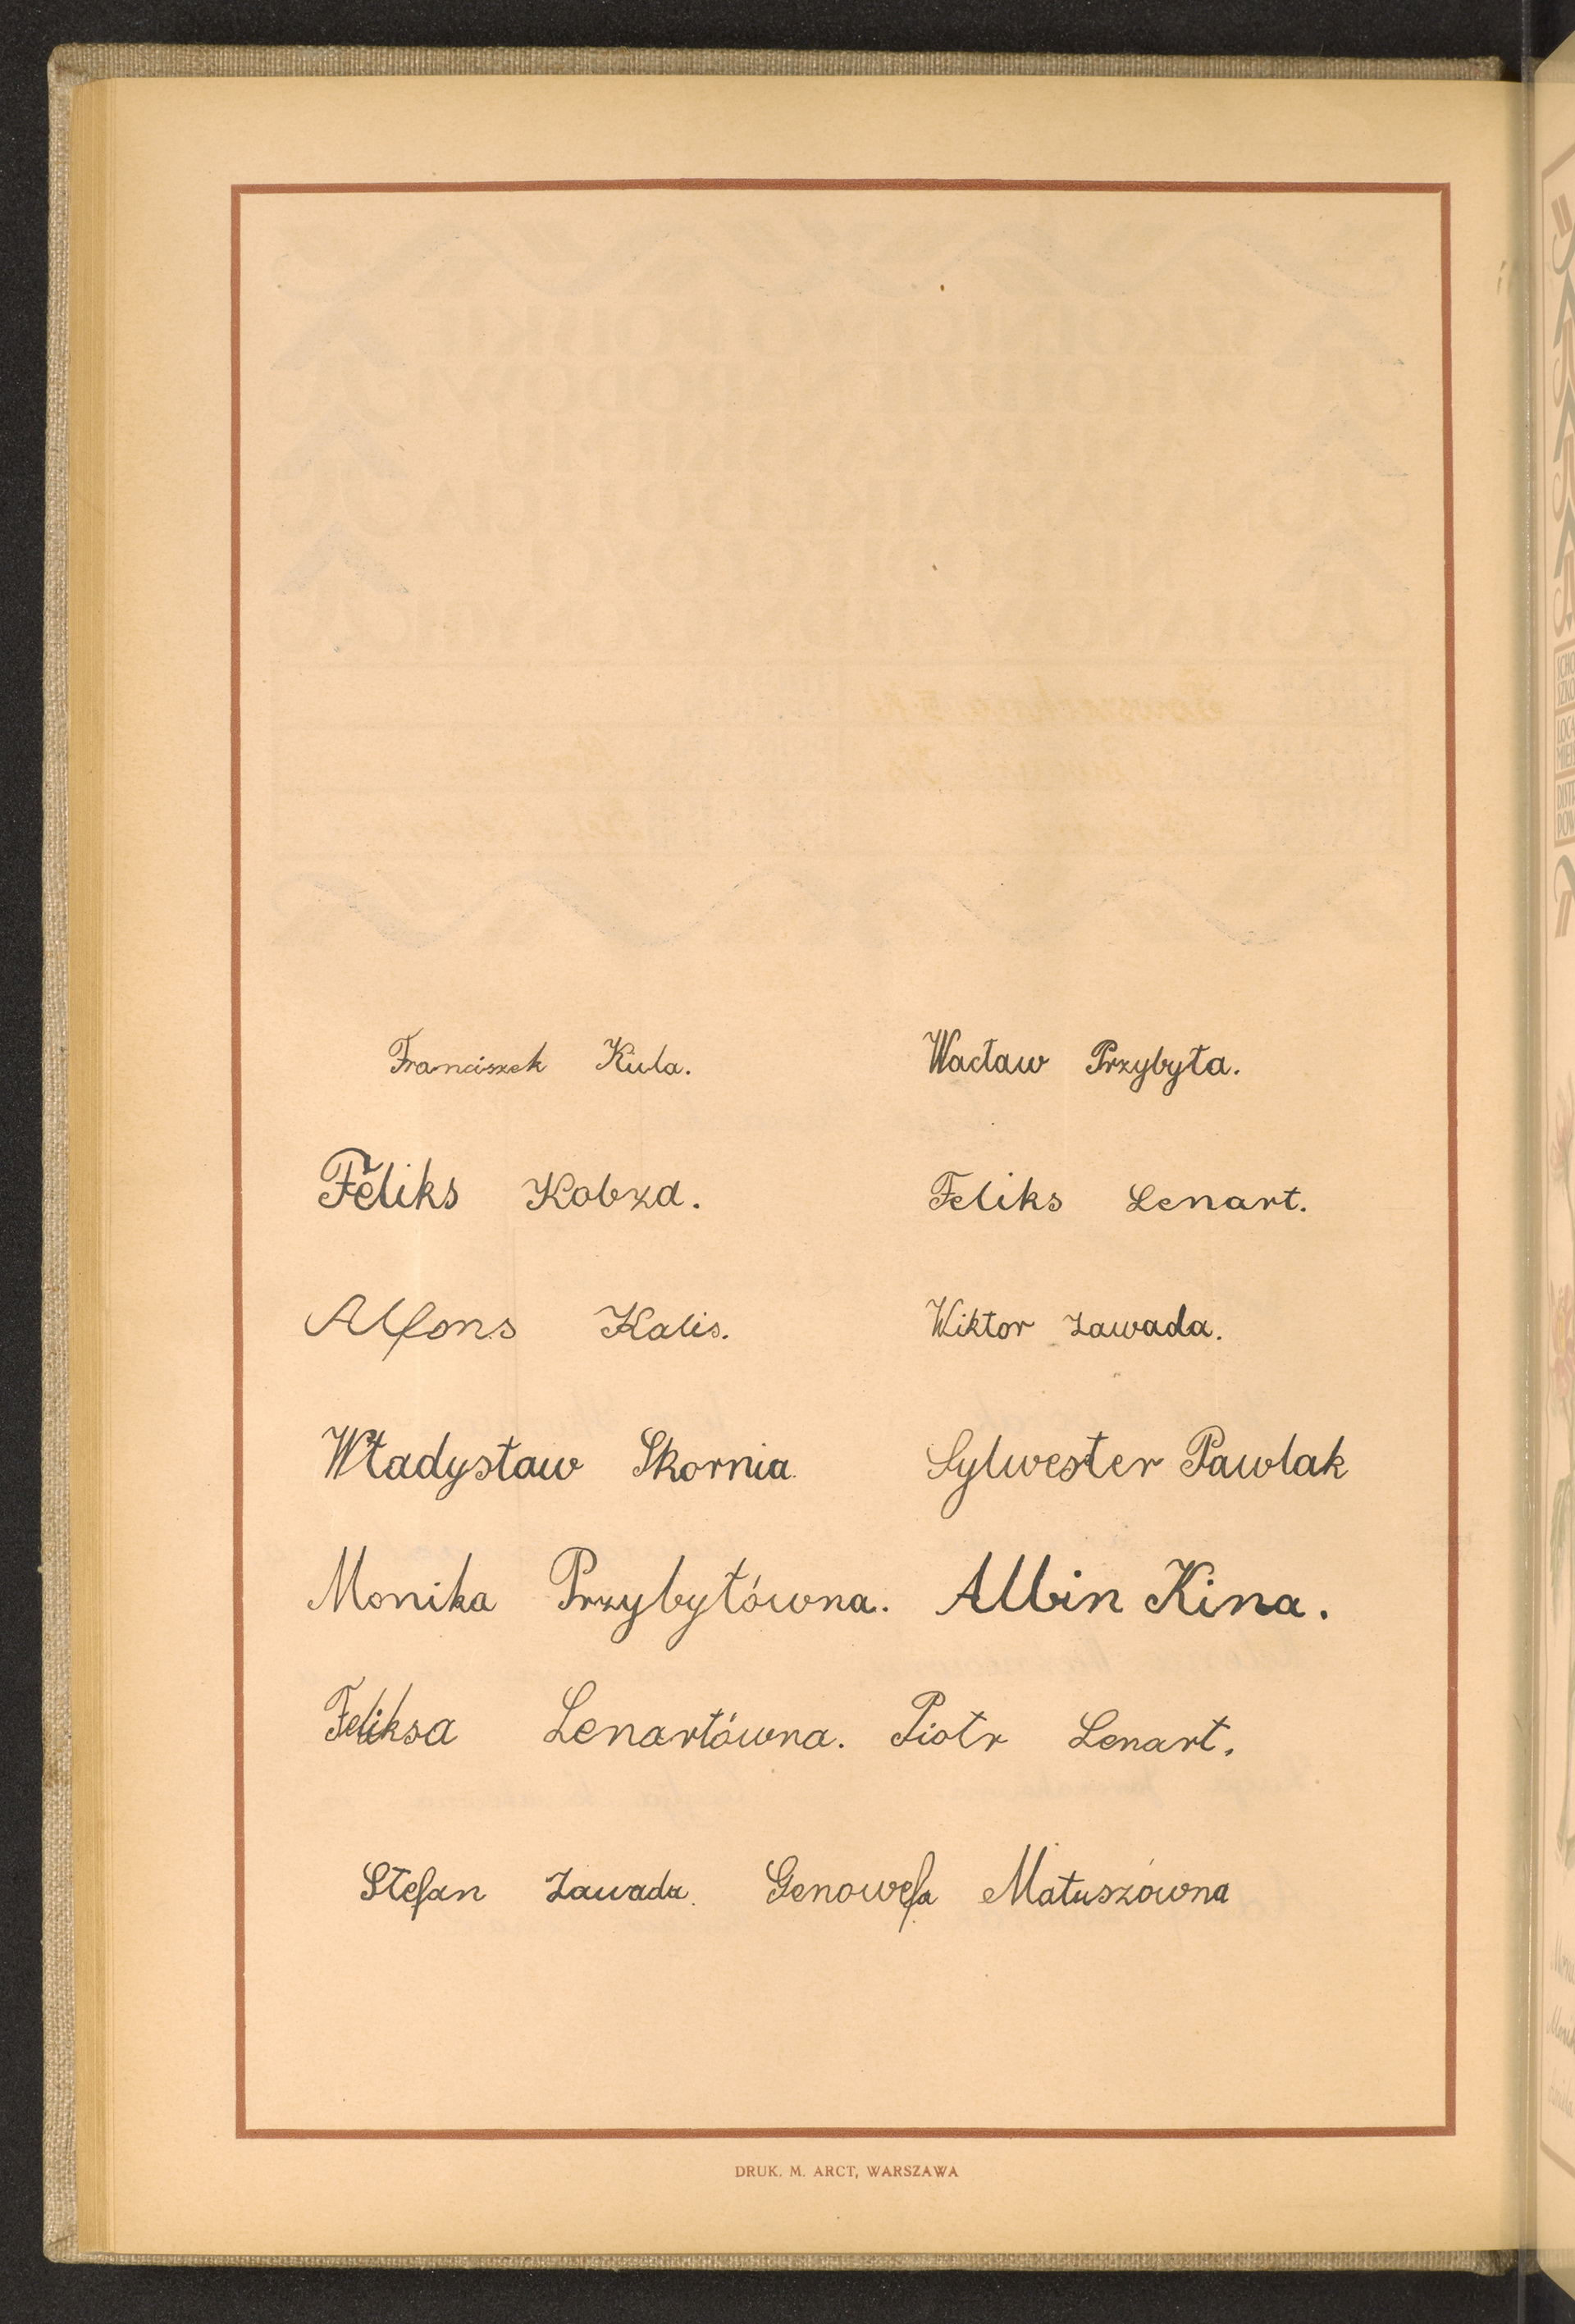 Franciszek Kula. Wacław Przybyła.
Feliks Kobza. Feliks Lenart.
Alfons Kalis. Wiktor Zawada.
Władysław Skornia. Sylwester Pawlak
Monika Przybyłówna. Albin Kina.
Feliksa Lenartówna. Piotr Lenart.
Stefan Zawada. Genowefa Matuszówna
DRUK. M. ARCT, WARSZAWA